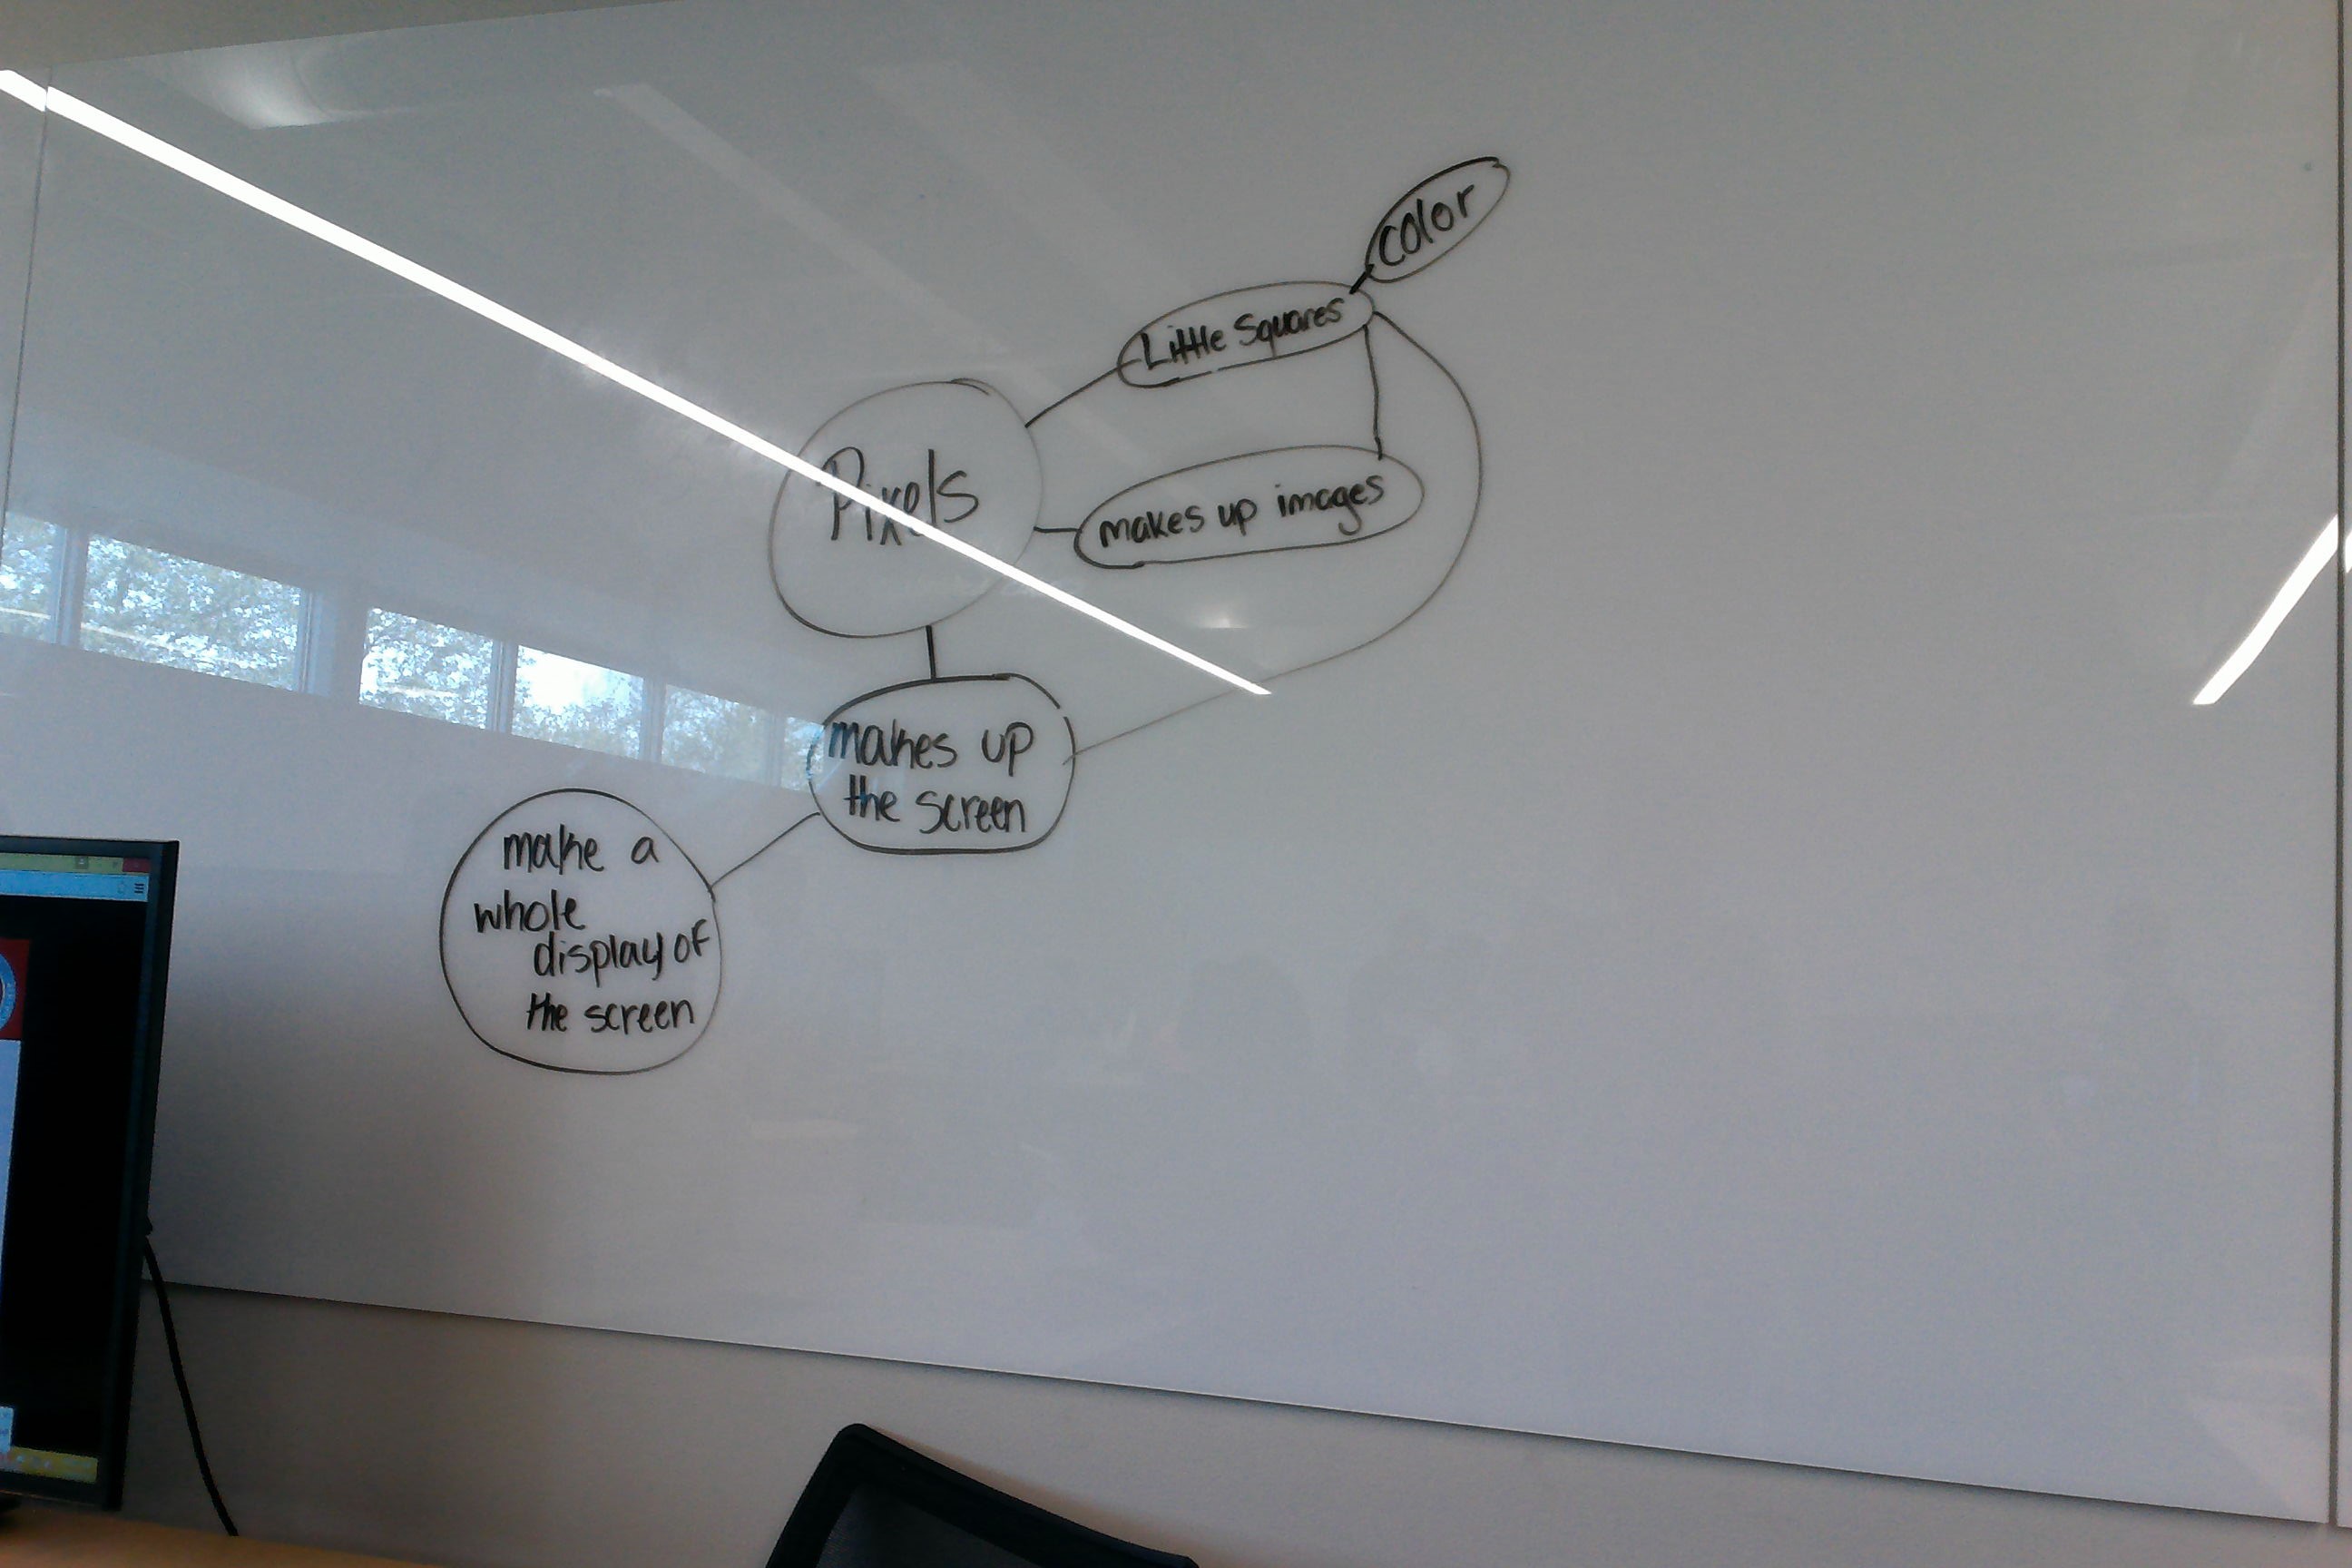 color
Little Squares
Pixels
makes up images
makes up
the screen
make a
whole
display of
the screen